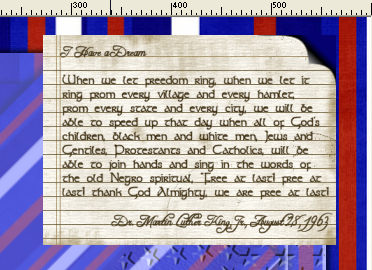 300 400 500
I Have a Dream
When we let freedom ring, when we let it
ring from every village and every hamlet,
from every state and every city, we will be
able to speed up that day when all of God's
children, black men and white men, Jews and
Gentiles, Protestants and Catholics, will be
able to join hands and sing in the words of
the old Negro spiritual, Free at last! free at
last! thank God Almighty, we are free at last!
Dr. Martin Luther King Jr., August 28, 1963